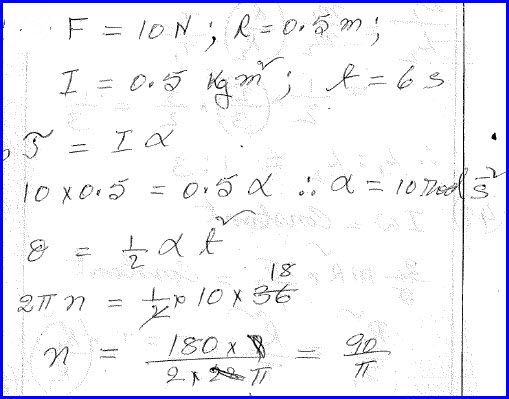 F = 10N ; R = 0.5m ;
I = 0.5 Kgm² ; t = 6 s
τ = I α
10 x 0.5 = 0.5 α ∴ α = 10 rad s⁻²
θ = 1/2 α t²
2π n = 1/2 x 10 x 36 18
n = 180 x 7 / 2 x 22 π = 90/π